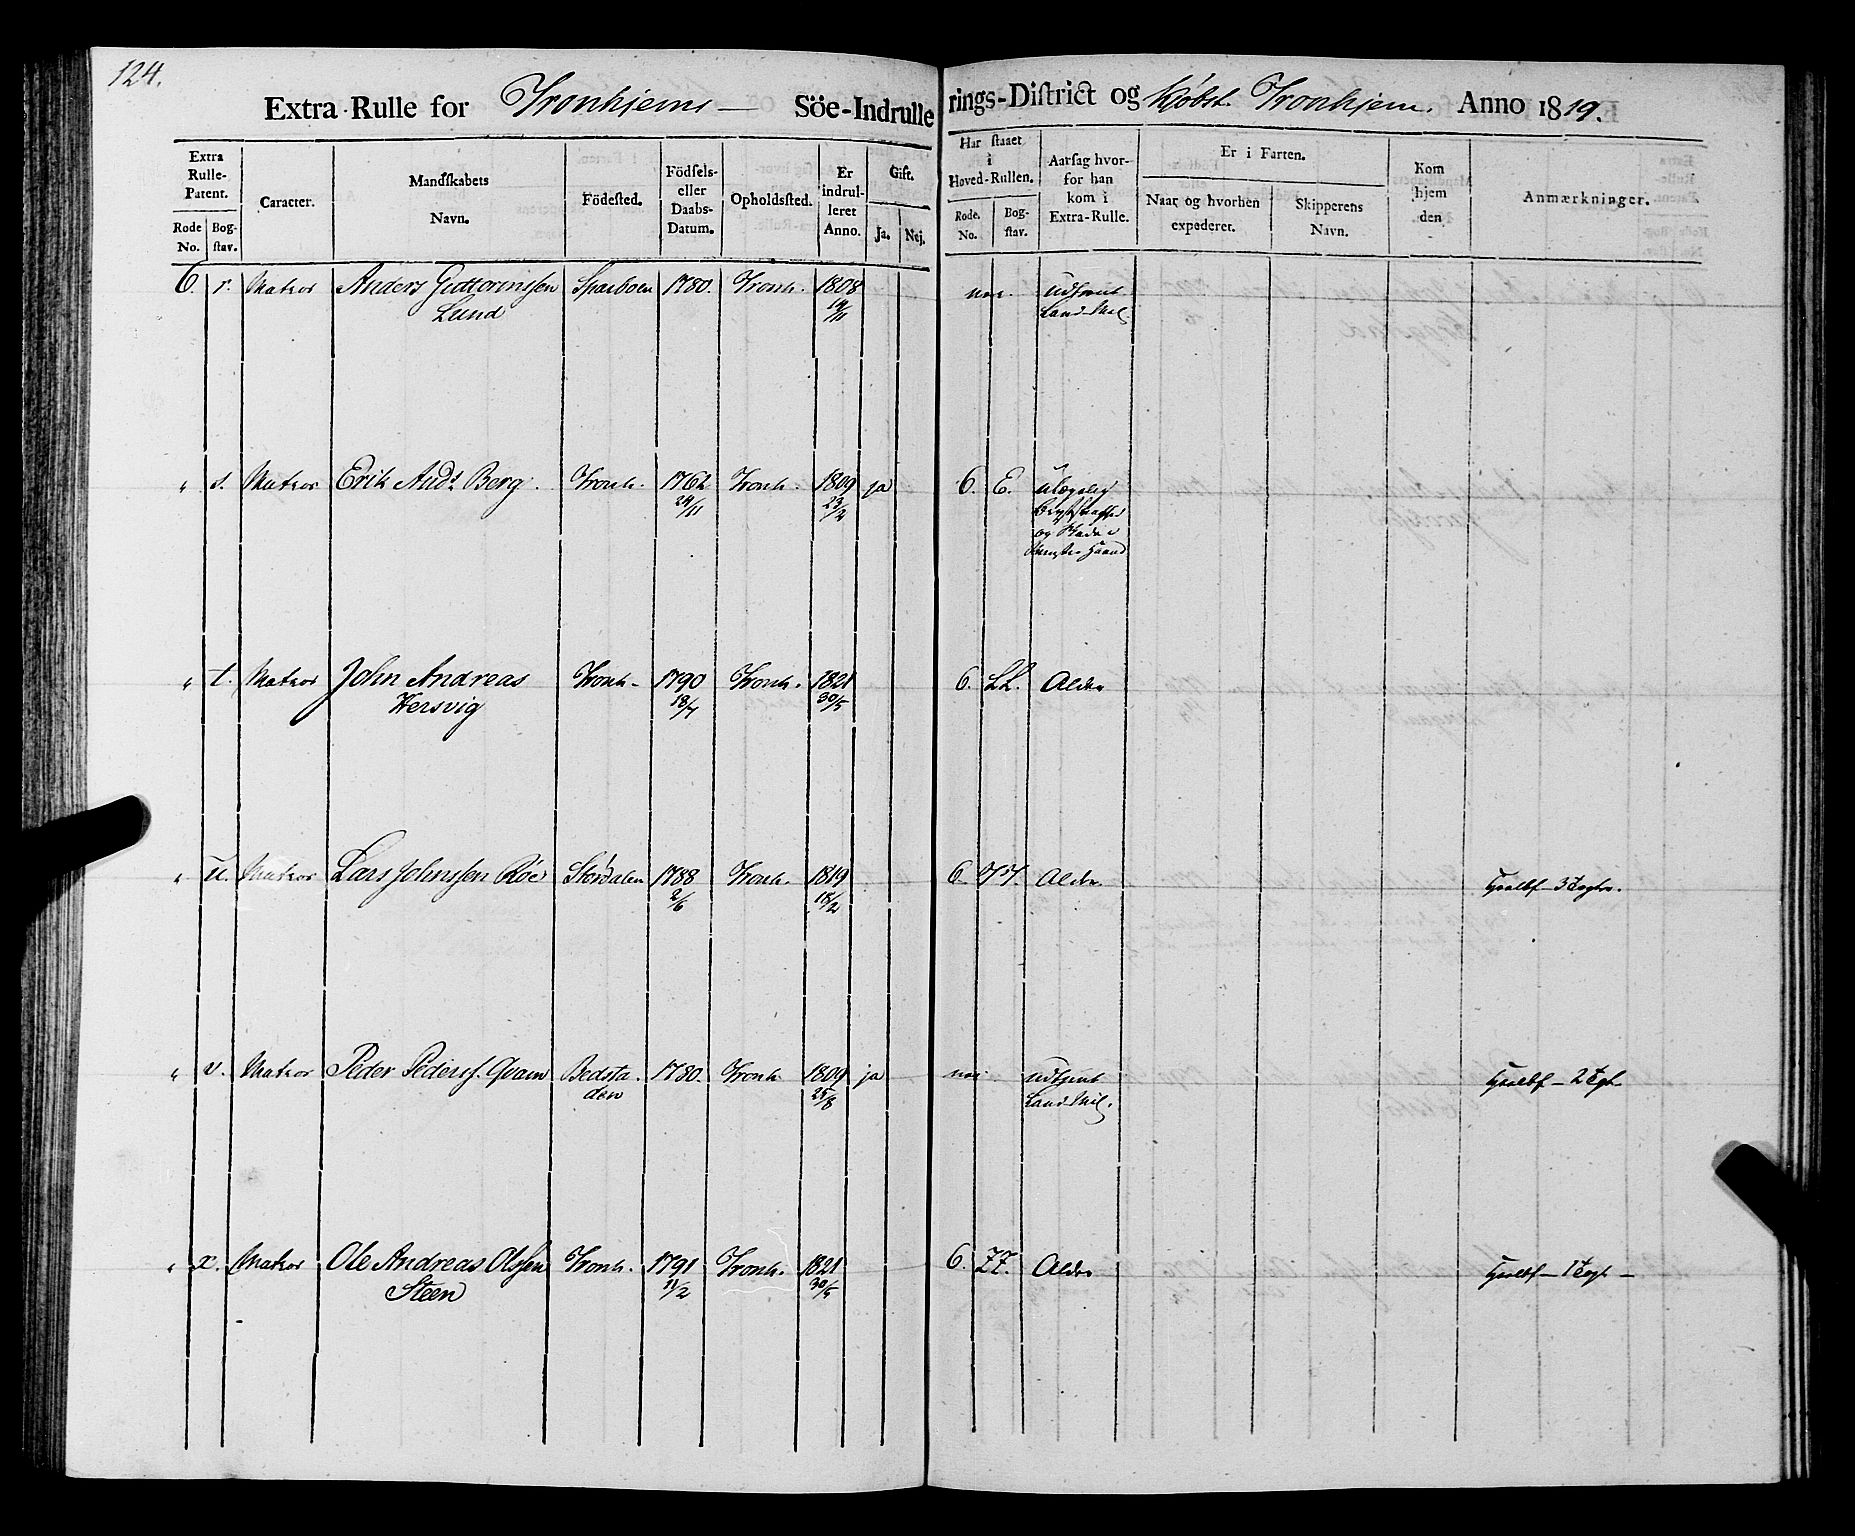 124.
Extra Rulle for Tronhjems — Söe-Indrullerings-District og Kjøbst. Tronhjem. Anno 1819.
Extra Rulle-Patent. Caracter. Mandskabets Navn. Födested. Födsels- eller Daabs-Datum. Opholdssted. Er indrulleret Anno. Gift. Har staaet i Hoved-Rullen. Aarsag hvorfor han kom i Extra-Rulle. Er i Farten. Kom hjem den Anmærkninger.
Rode No. Bogstav. Ja. Nej. Rode. No. Bogstav. Naar og hvorhen expederet. Skipperens Navn.
6. r. Matros Anders Guttormssen Sparboen 1780. Tronh. 1808 nei. udtjent
Lund 19/11 Land Mil.
" s. Matros Erik Ands Berg. Tronh. 1762 Tronh. 1809 ja 6. E.
24/11 23/2
og Skade i
Haand
" t. Matros John Andreas Tronh. 1790 Tronh. 1821 6. LL. Alder
Hersvig 18/7 30/5
" u. Matros Lars Johnssen Röe Stördalen 1788 Tronh. 1819 6. Alder. 3
2/6 18/2
" v. Matros Peder Peders. Qvam Bedsta- 1780. Tronh. 1809 ja nei. udtjent 2
den 25/8 Land Mil.
" x. Matros Ole Andreas Olssen Tronh. 1791 Tronh. 1821 6. ZZ. Alder 1
Steen 11/2 30/5